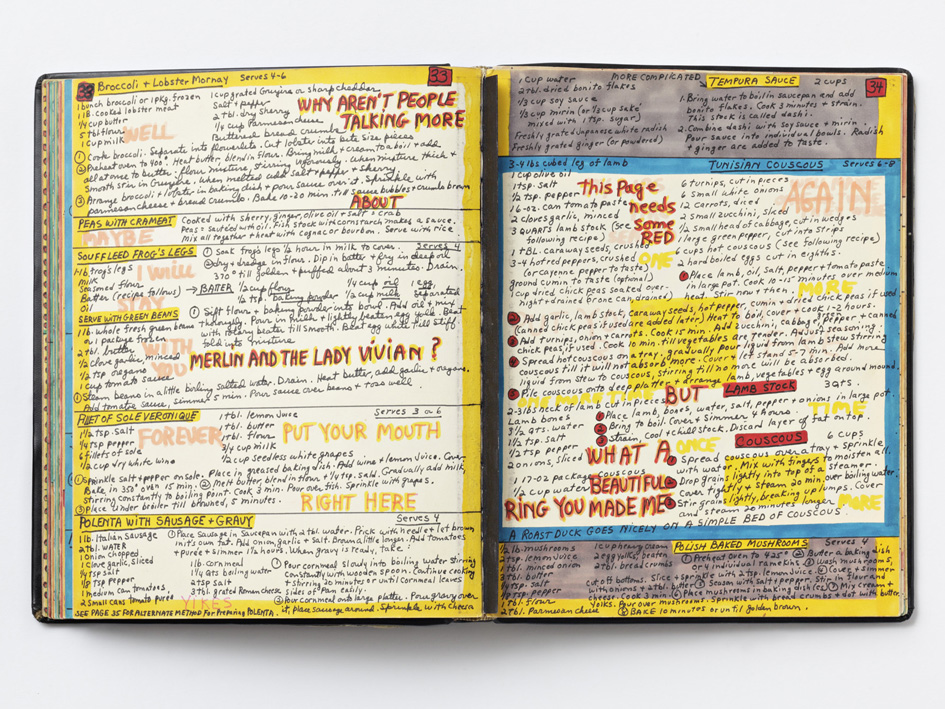 33
Broccoli + Lobster Mornay Serves 4-6
33
1 bunch broccoli or 1 pkg. frozen
1 lb. cooked lobster meat
1/4 cup butter
5 tbl flour
1 cup milk
1 cup grated Gruyere or sharp cheddar
Salt + pepper
2 tbl. dry sherry
1/4 cup Parmesan cheese
Buttered bread crumbs
WHY AREN'T PEOPLE
TALKING MORE
WELL
① Cook broccoli. Separate into flowerlets. Cut lobster into bite size pieces
② Preheat oven to 400. Heat butter, blend in flour. Bring milk + cream to a boil + add
all at once to butter-flour mixture, stirring vigorously. When mixture thick +
Smooth stir in Gruyere. When melted add salt + pepper + sherry
③ Arrange broccoli + lobster in baking dish + pour sauce over it. Sprinkle with
parmesan cheese + bread crumbs. Bake 10-20 min. till sauce bubbles + crumbs brown
ABOUT
PEAS WITH CRAMEAT
Cooked with sherry, ginger, olive oil + salt = crab
Peas = Sauted with oil. Fish stock with cornstarch makes a sauce.
Mix all together + heat with cognac or bourbon. Serve with rice.
MAYBE
SOUFFLEED FROG'S LEGS
Serves 4
1 lb. frog's legs
Milk
Seasoned flour
Batter (recipe follows)
Oil
① Soak frog's legs 1/2 hour in milk to cover.
② Dry + dredge in flour. Dip in batter + fry in deep oil
370° till golden + puffed about 3 minutes. Drain.
I WILL
STAY
→ BATTER
1/2 cup flour
1/2 tsp. baking powder
1/4 cup oil
1/2 cup milk
1 egg,
Separated
① Sift flour + baking powder into bowl. Add oil + mix
thoroughly. Pour in milk + lightly beaten egg yolk. Beat
with rotary beater till smooth. Beat egg white till stiff
fold into mixture
SERVE WITH GREEN BEANS
1 lb. whole fresh green beans
or 1 package frozen
2 tbl. butter
1/2 clove garlic minced
1/2 tsp oregano
1 cup tomato sauce
WITH
YOU
MERLIN AND THE LADY VIVIAN?
① Steam beans in a little boiling salted water. Drain. Heat butter, add garlic + oregano.
Add tomato sauce, simmer 5 min. Pour sauce over beans + toss well
FILET OF SOLE VERONIQUE
Serves 3 or 6
1 1/2 tsp. salt
1/4 tsp pepper
6 fillets of sole
1/2 cup dry white wine
1 tbl. lemon juice
1 tbl. butter
1 tbl. flour
3/4 cup milk
1/2 cup seedless white grapes
FOREVER
PUT YOUR MOUTH
① Sprinkle salt + pepper on sole. Place in greased baking dish. Add wine + lemon juice. Cover
Bake in 350° oven 15 min. ② Melt butter, blend in flour + 1/4 tsp. salt. Gradually add milk,
Stirring constantly to boiling point. Cook 2 min. Pour over fish. Sprinkle with grapes.
③ Place under broiler till browned, 5 minutes.
RIGHT HERE
POLENTA WITH SAUSAGE + GRAVY
Serves 4
1 lb. Italian Sausage
2 tbl. WATER
1 Onion chopped
1 clove garlic, sliced
1/4 tsp salt
1/8 tsp pepper
1 medium can tomatoes
2 Small cans tomato puree
① Place Sausage in Saucepan with 2 tbl. water. Prick with needle + let brown
in its own fat. Add onion, garlic + Salt. Brown a little longer. Add tomatoes
+ purée + simmer 1 1/2 hours. When gravy is ready, take:
1 lb. cornmeal
1 1/4 qts boiling water
2 tsp salt
2 tbl grated Romano cheese
① Pour cornmeal slowly into boiling water stirring
Constantly with wooden spoon. Continue cooking
+ Stirring 30 minutes or until cornmeal leaves
sides of pan easily.
② Pour cornmeal onto large platter. Pour gravy over
it, place sausage around. Sprinkle with cheese
SEE PAGE 35 FOR ALTERNATE METHOD FOR PREPARING POLENTA.
MORE COMPLICATED
TEMPURA SAUCE
2 cups
34
1 cup water
2 tbl. dried bonito flakes
1/3 cup soy sauce
1/3 cup mirin (or 1/3 cup sake
mixed with 1 tsp. sugar)
Freshly grated Japanese white radish
Freshly grated ginger (or powdered)
1. Bring water to boil in saucepan and add
bonito flakes. Cook 3 minutes + strain.
This stock is called dashi.
2. Combine dashi with soy sauce + mirin.
Pour sauce into individual bowls. Radish
+ ginger are added to taste.
3-4 lbs cubed leg of lamb
TUNISIAN COUSCOUS
Serves 6-8
1 cup olive oil
1 tsp. salt
1/2 tsp. pepper
16-oz. can tomato paste
2 cloves garlic, minced
3 quarts lamb stock (
following recipe)
1 tbl. caraway seeds, crushed
3-4 hot peppers, crushed
(or cayenne pepper to taste)
ground cumin to taste (optional)
1 cup dried chick peas soaked over
night + drained or one can, drained)
This Page
needs
Some
RED
ONE
6 turnips, cut in pieces
6 small white onions
12 Carrots, diced
2 Small zucchini, sliced
1/2 Small head of cabbage, cut in wedges
1 large green pepper, cut into strips
6 cups hot couscous (see following recipe)
2 hard boiled eggs cut in eighths.
AGAIN
① Place lamb, oil, salt, pepper + tomato paste
in large pot. Cook 10-15 minutes over medium
heat. Stir now + then.
MORE
② Add garlic, lamb stock, caraway seeds, hot pepper, cumin + dried chick peas if used
(canned chick peas if used are added later). Heat to boil, cover + cook 1-2 hours
③ Add turnips, onion + carrots. Cook 15 min. Add zucchini, cabbag, green pepper + canned
chick peas if used. Cook 10 min. till vegetables are tender. Adjust seasoning
④ Spread hot couscous on a tray, gradually pour liquid from lamb stew stirring
couscous till it will not absorb more. Cover + let stand 5-7 min. Add more
liquid from stew to couscous, stirring till no more will be absorbed.
⑤ Pile couscous onto deep platter + arrange lamb, vegetables + egg around mound.
BUT
LAMB STOCK
3 qts.
2-3 lbs neck of lamb cut in pieces
Lamb bones
3 1/2 qts. water
1 1/2 tsp. salt
1/2 tsp pepper
2 onions, sliced
① Place lamb, bones, water, salt, pepper + onions in large pot.
② Bring to boil. Cover + Simmer 4 hours.
③ Strain, Cool + chill stock. Discard layer of fat on top
TIME
WHAT A
ONCE
COUSCOUS
6 cups
1 17-oz package couscous
1/2 cup water
① Spread couscous over a tray + sprinkle
with water. Mix with fingers to moisten all.
② Drop grains lightly into top of a steamer.
Cover tightly + steam 20 min, over boiling water
③ Stir grains lightly, breaking up lumps. Cover
and steam 20 minutes longer
BEAUTIFUL
RING YOU MADE ME
MORE
A ROAST DUCK GOES NICELY ON A SIMPLE BED OF COUSCOUS
POLISH BAKED MUSHROOMS
Serves 4
1 lb. mushrooms
1 tsp. lemon juice
1 tbl. minced onion
tbl. butter
tsp. salt
tsp. pepper
1 tbl. flour
2 tbl. Parmesan cheese
1 cup heavy cream
2 egg yolks, beaten
2 tbl. bread crumbs
① Preheat oven to 425° ② Butter a baking dish
or 4 individual ramekins. ③ Wash mushrooms,
cut off bottoms. Slice + sprinkle with 2 tsp. lemon juice.